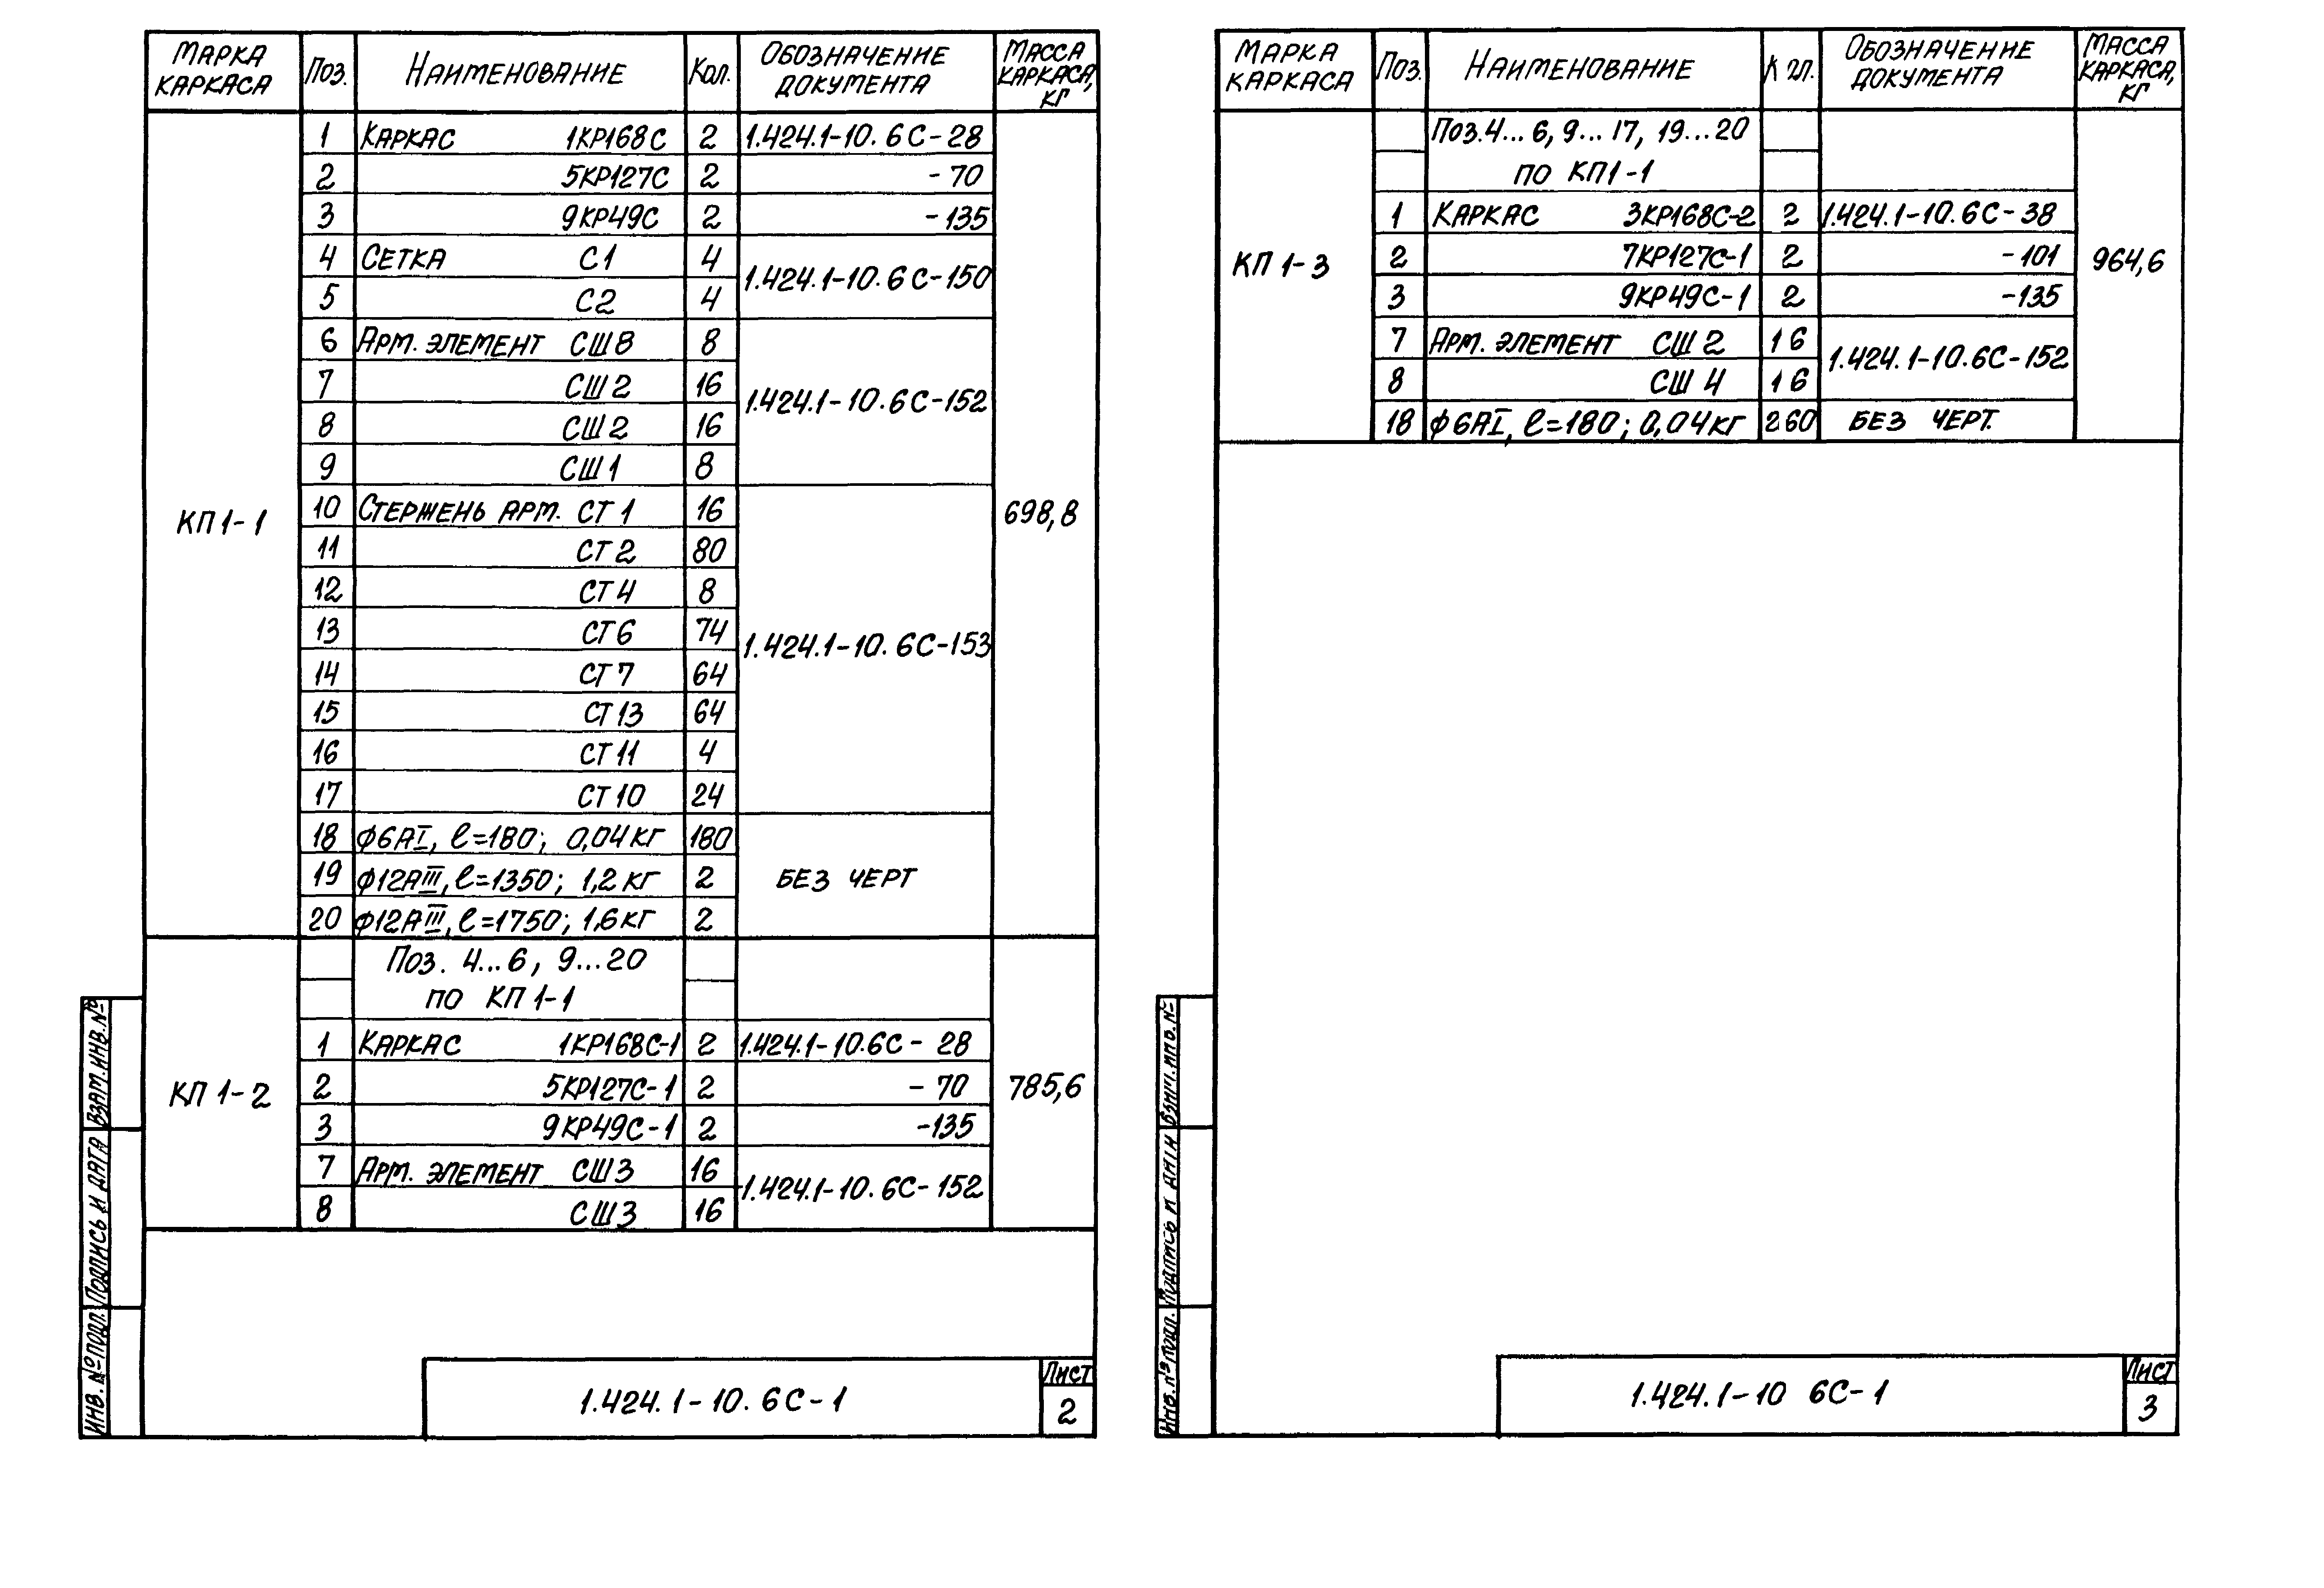 Марка каркаса Поз. Наименование Кол. Обозначение документа Масса каркаса, кг
КП 1-1 698,8
1 Каркас 1КР168С 2 1.424.1-10.6С-28
2 5КР127С 2 -70
3 9КР49С 2 -135
4 Сетка С1 4 1.424.1-10.6С-150
5 С2 4
6 Арм. элемент СШ8 8 1.424.1-10.6С-152
7 СШ2 16
8 СШ2 16
9 СШ1 8
10 Стержень арм. СТ1 16 1.424.1-10.6С-153
11 СТ2 80
12 СТ4 8
13 СТ6 74
14 СТ7 64
15 СТ13 64
16 СТ11 4
17 СТ10 24
18 ф6АI, ℓ=180; 0,04кг 180 без черт
19 ф12АIII, ℓ=1350; 1,2кг 2
20 ф12АIII, ℓ=1750; 1,6кг 2
КП 1-2 785,6
Поз. 4...6, 9...20
по КП 1-1
1 Каркас 1КР168С-1 2 1.424.1-10.6С-28
2 5КР127С-1 2 -70
3 9КР49С-1 2 -135
7 Арм. элемент СШ3 16 1.424.1-10.6С-152
8 СШ3 16
Взам.инв.№
Подпись и дата
Инв.№подл.
1.424.1-10.6С-1
Лист
2
Марка каркаса Поз. Наименование К л. Обозначение документа Масса каркаса, кг
КП 1-3 964,6
Поз.4...6, 9...17, 19...20
по КП1-1
1 Каркас 3КР168С-2 2 1.424.1-10.6С-38
2 7КР127С-1 2 -101
3 9КР49С-1 2 -135
7 Арм. элемент СШ2 16 1.424.1-10.6С-152
8 СШ4 16
18 ф6АI, ℓ=180; 0,04кг 260 без черт.
Взам.инв.№
Подпись и дата
Инв.№подл.
1.424.1-10 6С-1
Лист
3